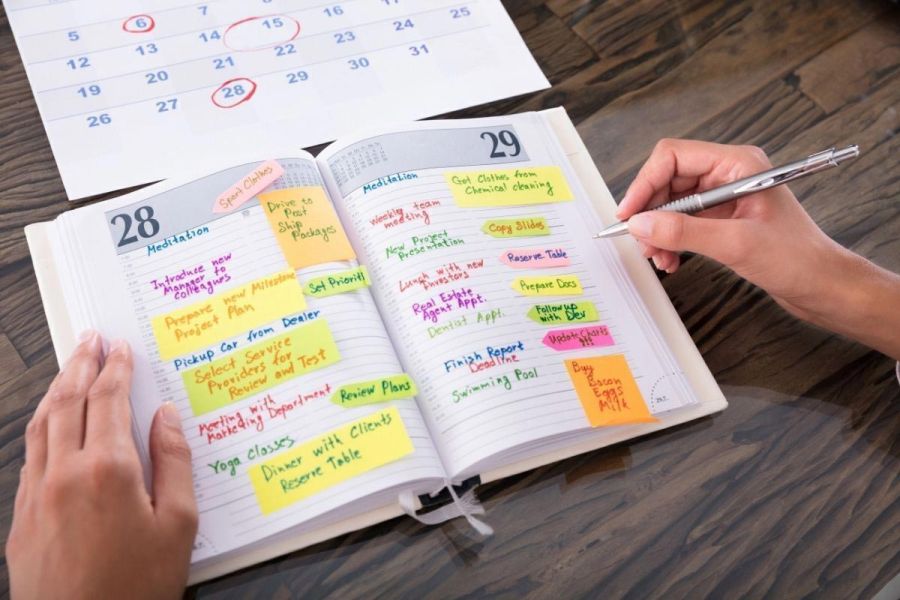 5 6 7
12 13 14 15 16 17
19 20 21 22 23 24 25
26 27 28 29 30 31
28
Sport Clothes
Meditation
Drive to
Post
Ship
Packages
Introduce new
Manager to
colleagues
Set Prioriti
Prepare new Milestone
Project Plan
Pickup Car from Dealer
Select Service
Providers for
Review and Test
Review Plans
Meeting with
Marketing Department
Yoga Classes
Dinner with Clients
Reserve Table
29
Meditation
Got Clothes from
Chemical cleaning
Weekly team
meeting
Copy Slides
New Project
Presentation
Reserve Table
Lunch with new
Investors
Prepare Docs
Real Estate
Agent Appt.
Follow up
with Dev
Dentist Appt.
Update Charts
!!!
Finish Report
Deadline
Buy
Bacon
Eggs
Milk
Swimming Pool